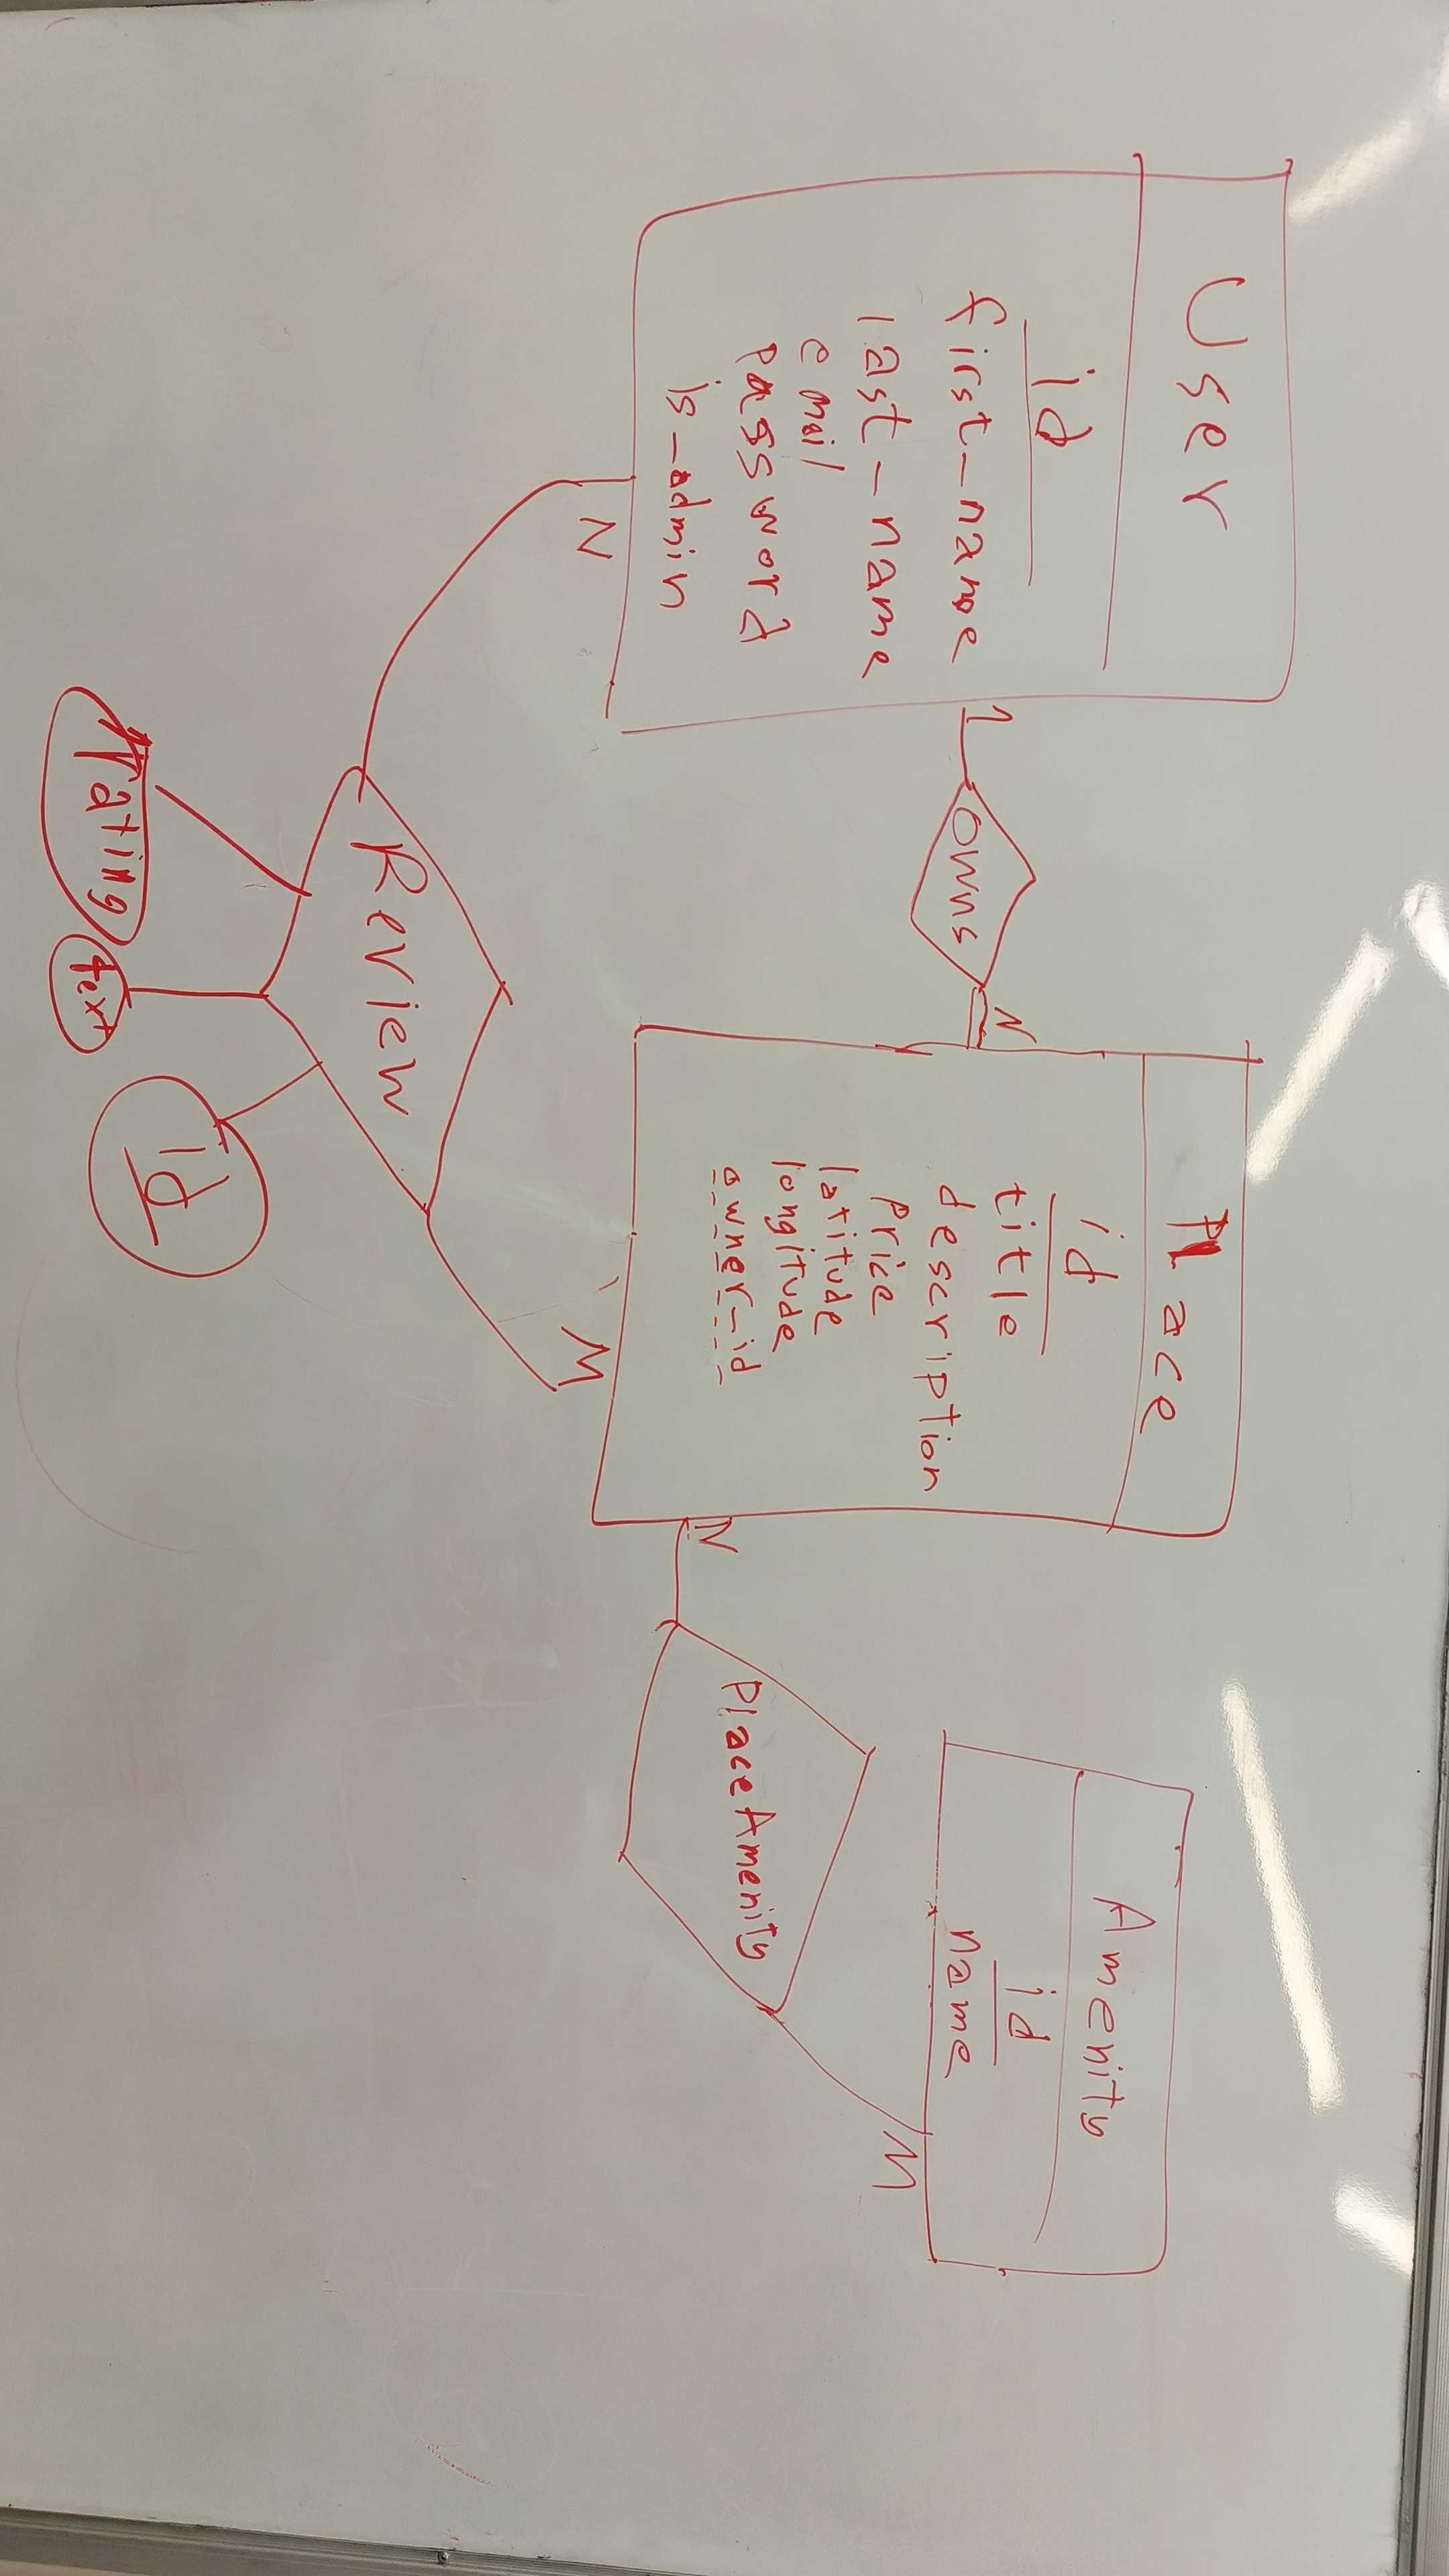 User
id
first_name
last_name
email
password
is_admin
1
owns
N
Place
id
title
description
Price
latitude
longitude
owner_id
Amenity
id
name
M
PlaceAmenity
N
N
M
Review
rating
text
id